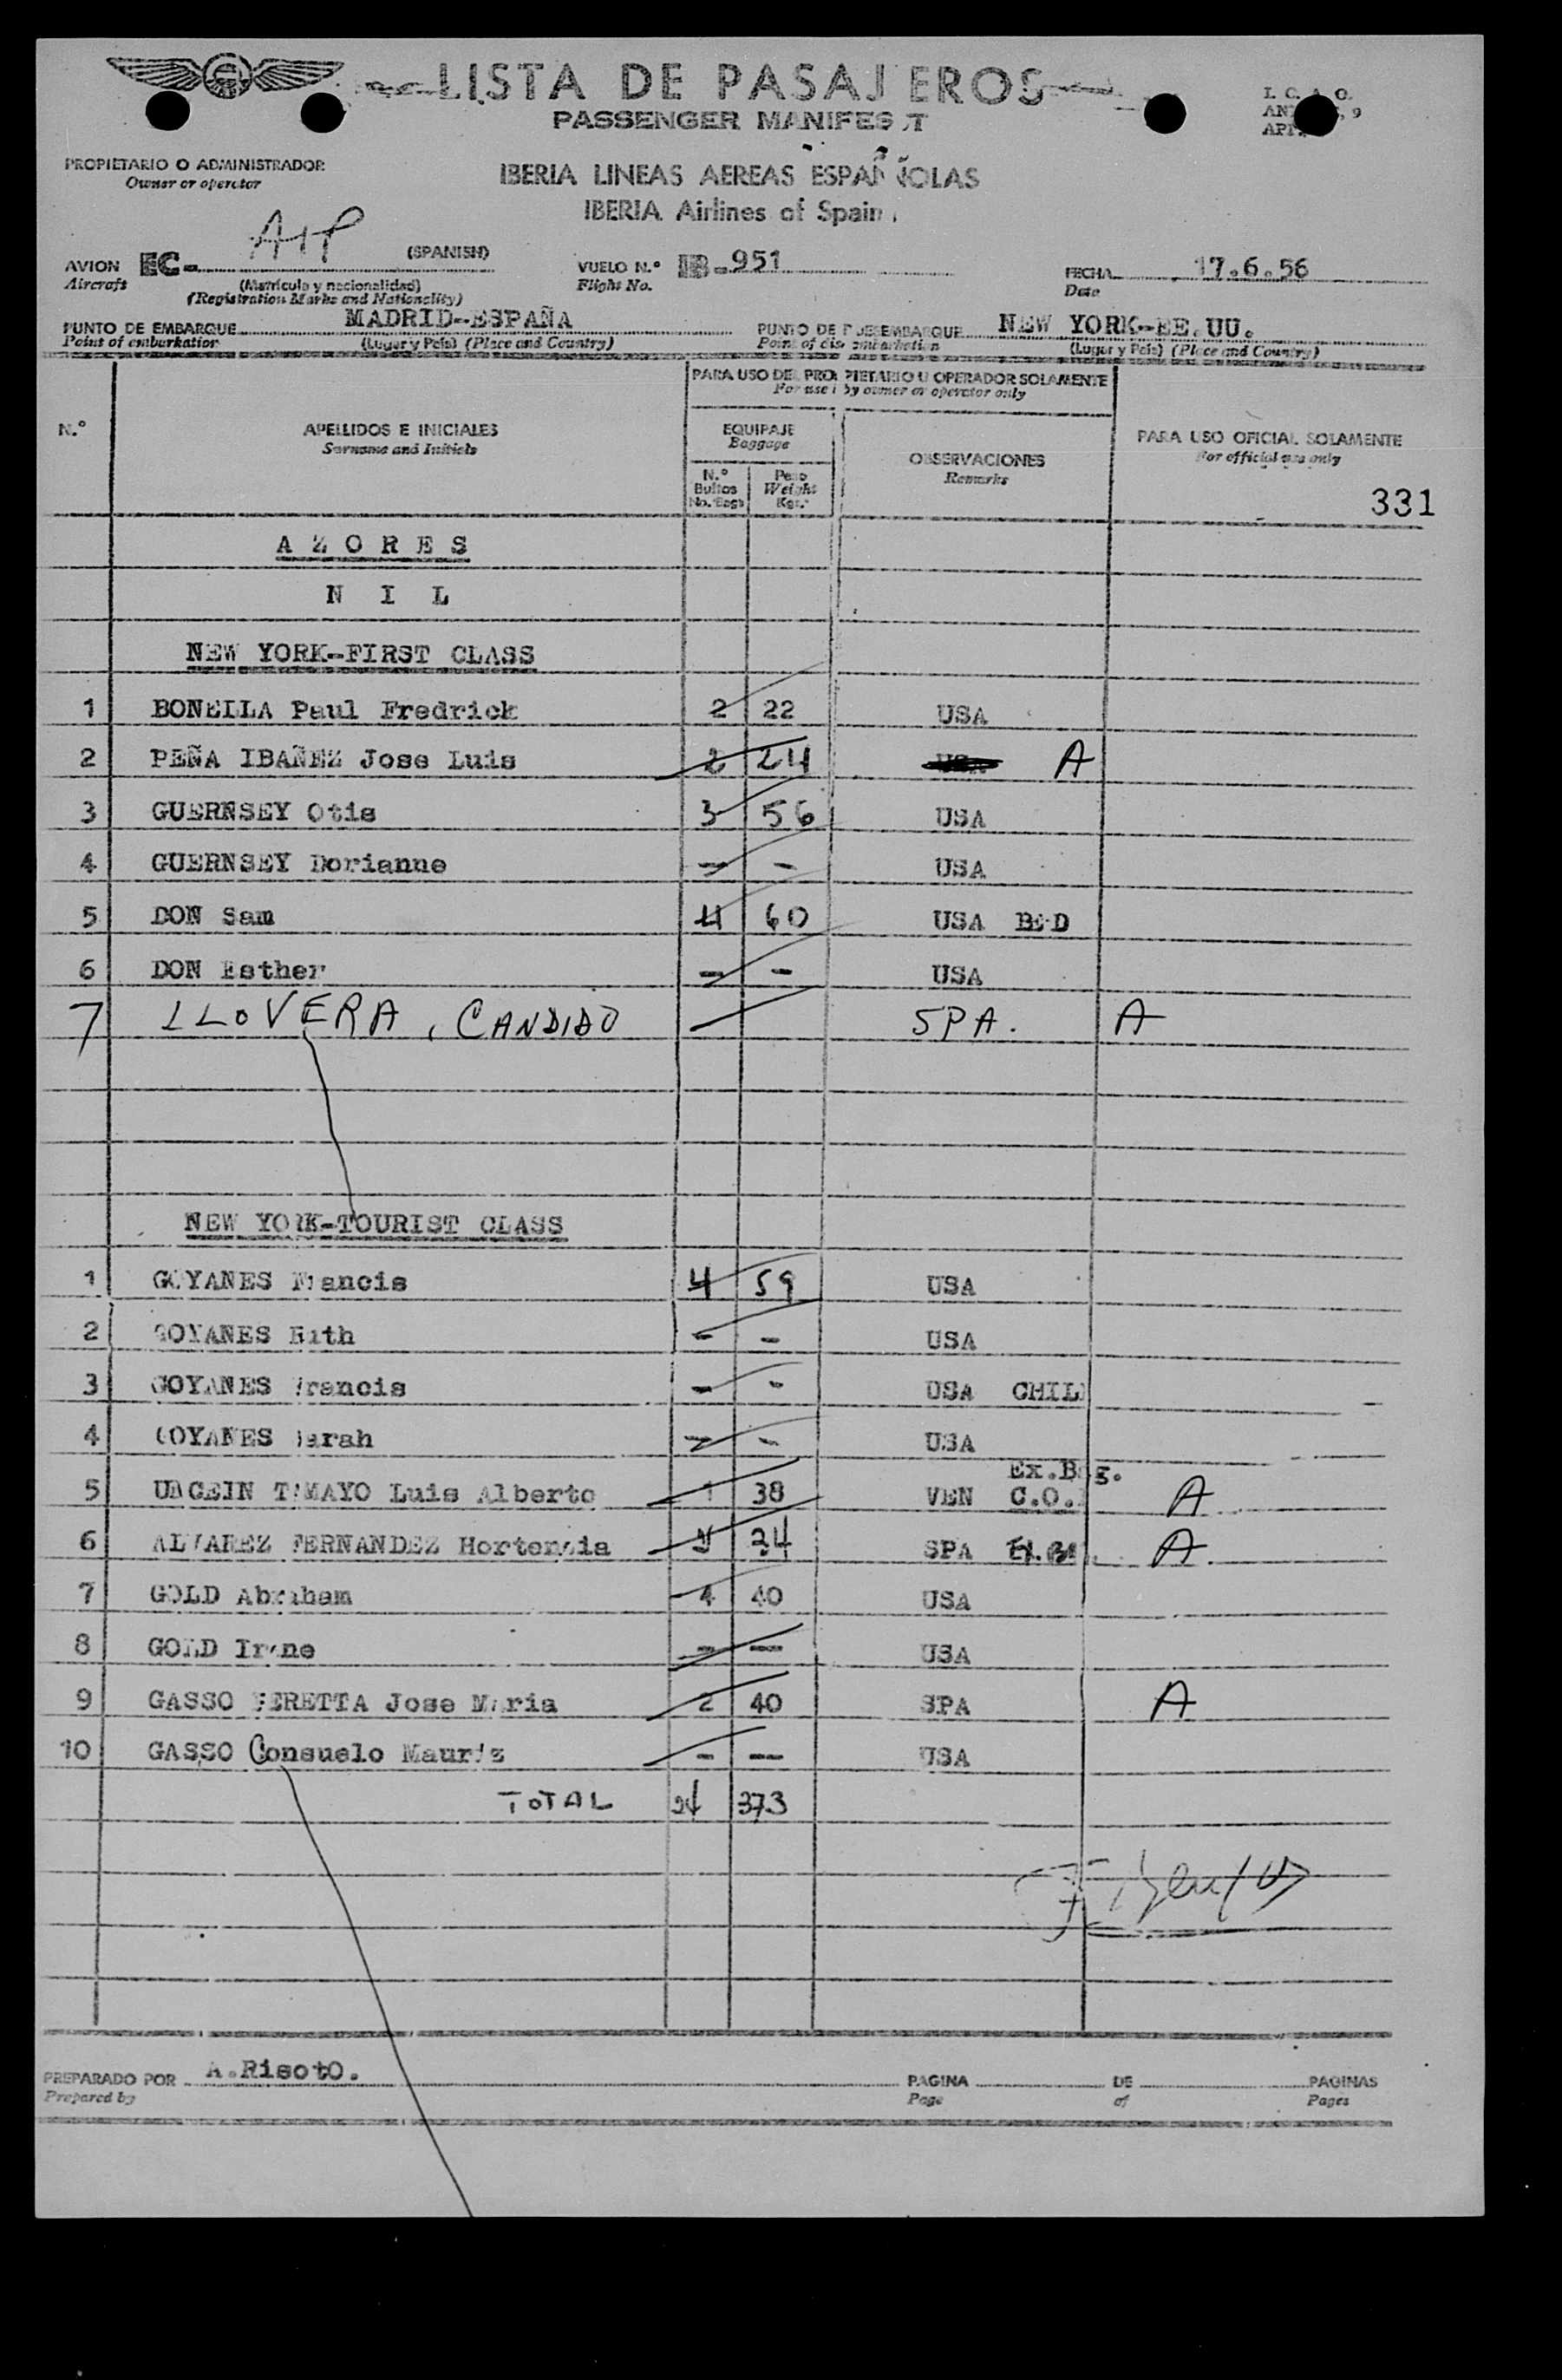 LISTA DE PASAJEROS
PASSENGER MANIFEST
I. C. A. O.
9
PROPIETARIO O ADMINISTRADOR
Owner or operator
IBERIA LINEAS AEREAS ESPAÑOLAS
IBERIA Airlines of Spain
AVION EC- (SPANISH) VUELO N.º IB-951 FECHA 17.6.56
Aircraft (Matrícula y nacionalidad) Flight No. Date
(Registration Marks and Nationality)
PUNTO DE EMBARQUE MADRID-ESPAÑA PUNTO DE DESEMBARQUE NEW YORK-EE.UU.
Point of embarkation (Lugar y País) (Place and Country) Point of disembarkation (Lugar y País) (Place and Country)
PARA USO DEL PROPIETARIO U OPERADOR SOLAMENTE
For use by owner or operator only
N.º APELLIDOS E INICIALES EQUIPAJE OBSERVACIONES PARA USO OFICIAL SOLAMENTE
Surname and Initials Baggage Remarks For official use only
N.º Bultos No. Bags Peso Weight Kgs.
331
AZORES
NIL
NEW YORK-FIRST CLASS
1 BONELLA Paul Fredrick 2 22 USA
2 PEÑA IBAÑEZ Jose Luis 2 24 A
3 GUERNSEY Otis 3 56 USA
4 GUERNSEY Dorianne - - USA
5 DON Sam 4 60 USA BED
6 DON Esther - - USA
7 LLOVERA, CANDIDO SPA. A
NEW YORK-TOURIST CLASS
1 GOYANES Francis 4 59 USA
2 GOYANES Ruth - - USA
3 GOYANES Francis - - USA CHILD
4 GOYANES Sarah - - USA
Ex.Bag.
5 TAMAYO Luis Alberto 1 38 VEN C.O. A
6 ALVAREZ FERNANDEZ Hortensia 34 SPA A
7 GOLD Abraham 4 40 USA
8 GOLD Irene - - USA
9 GASSO PERETTA Jose Maria 2 40 SPA A
10 GASSO Consuelo Mauriz - - USA
TOTAL 24 373
PREPARADO POR A.Risoto. PAGINA DE PAGINAS
Prepared by Page of Pages